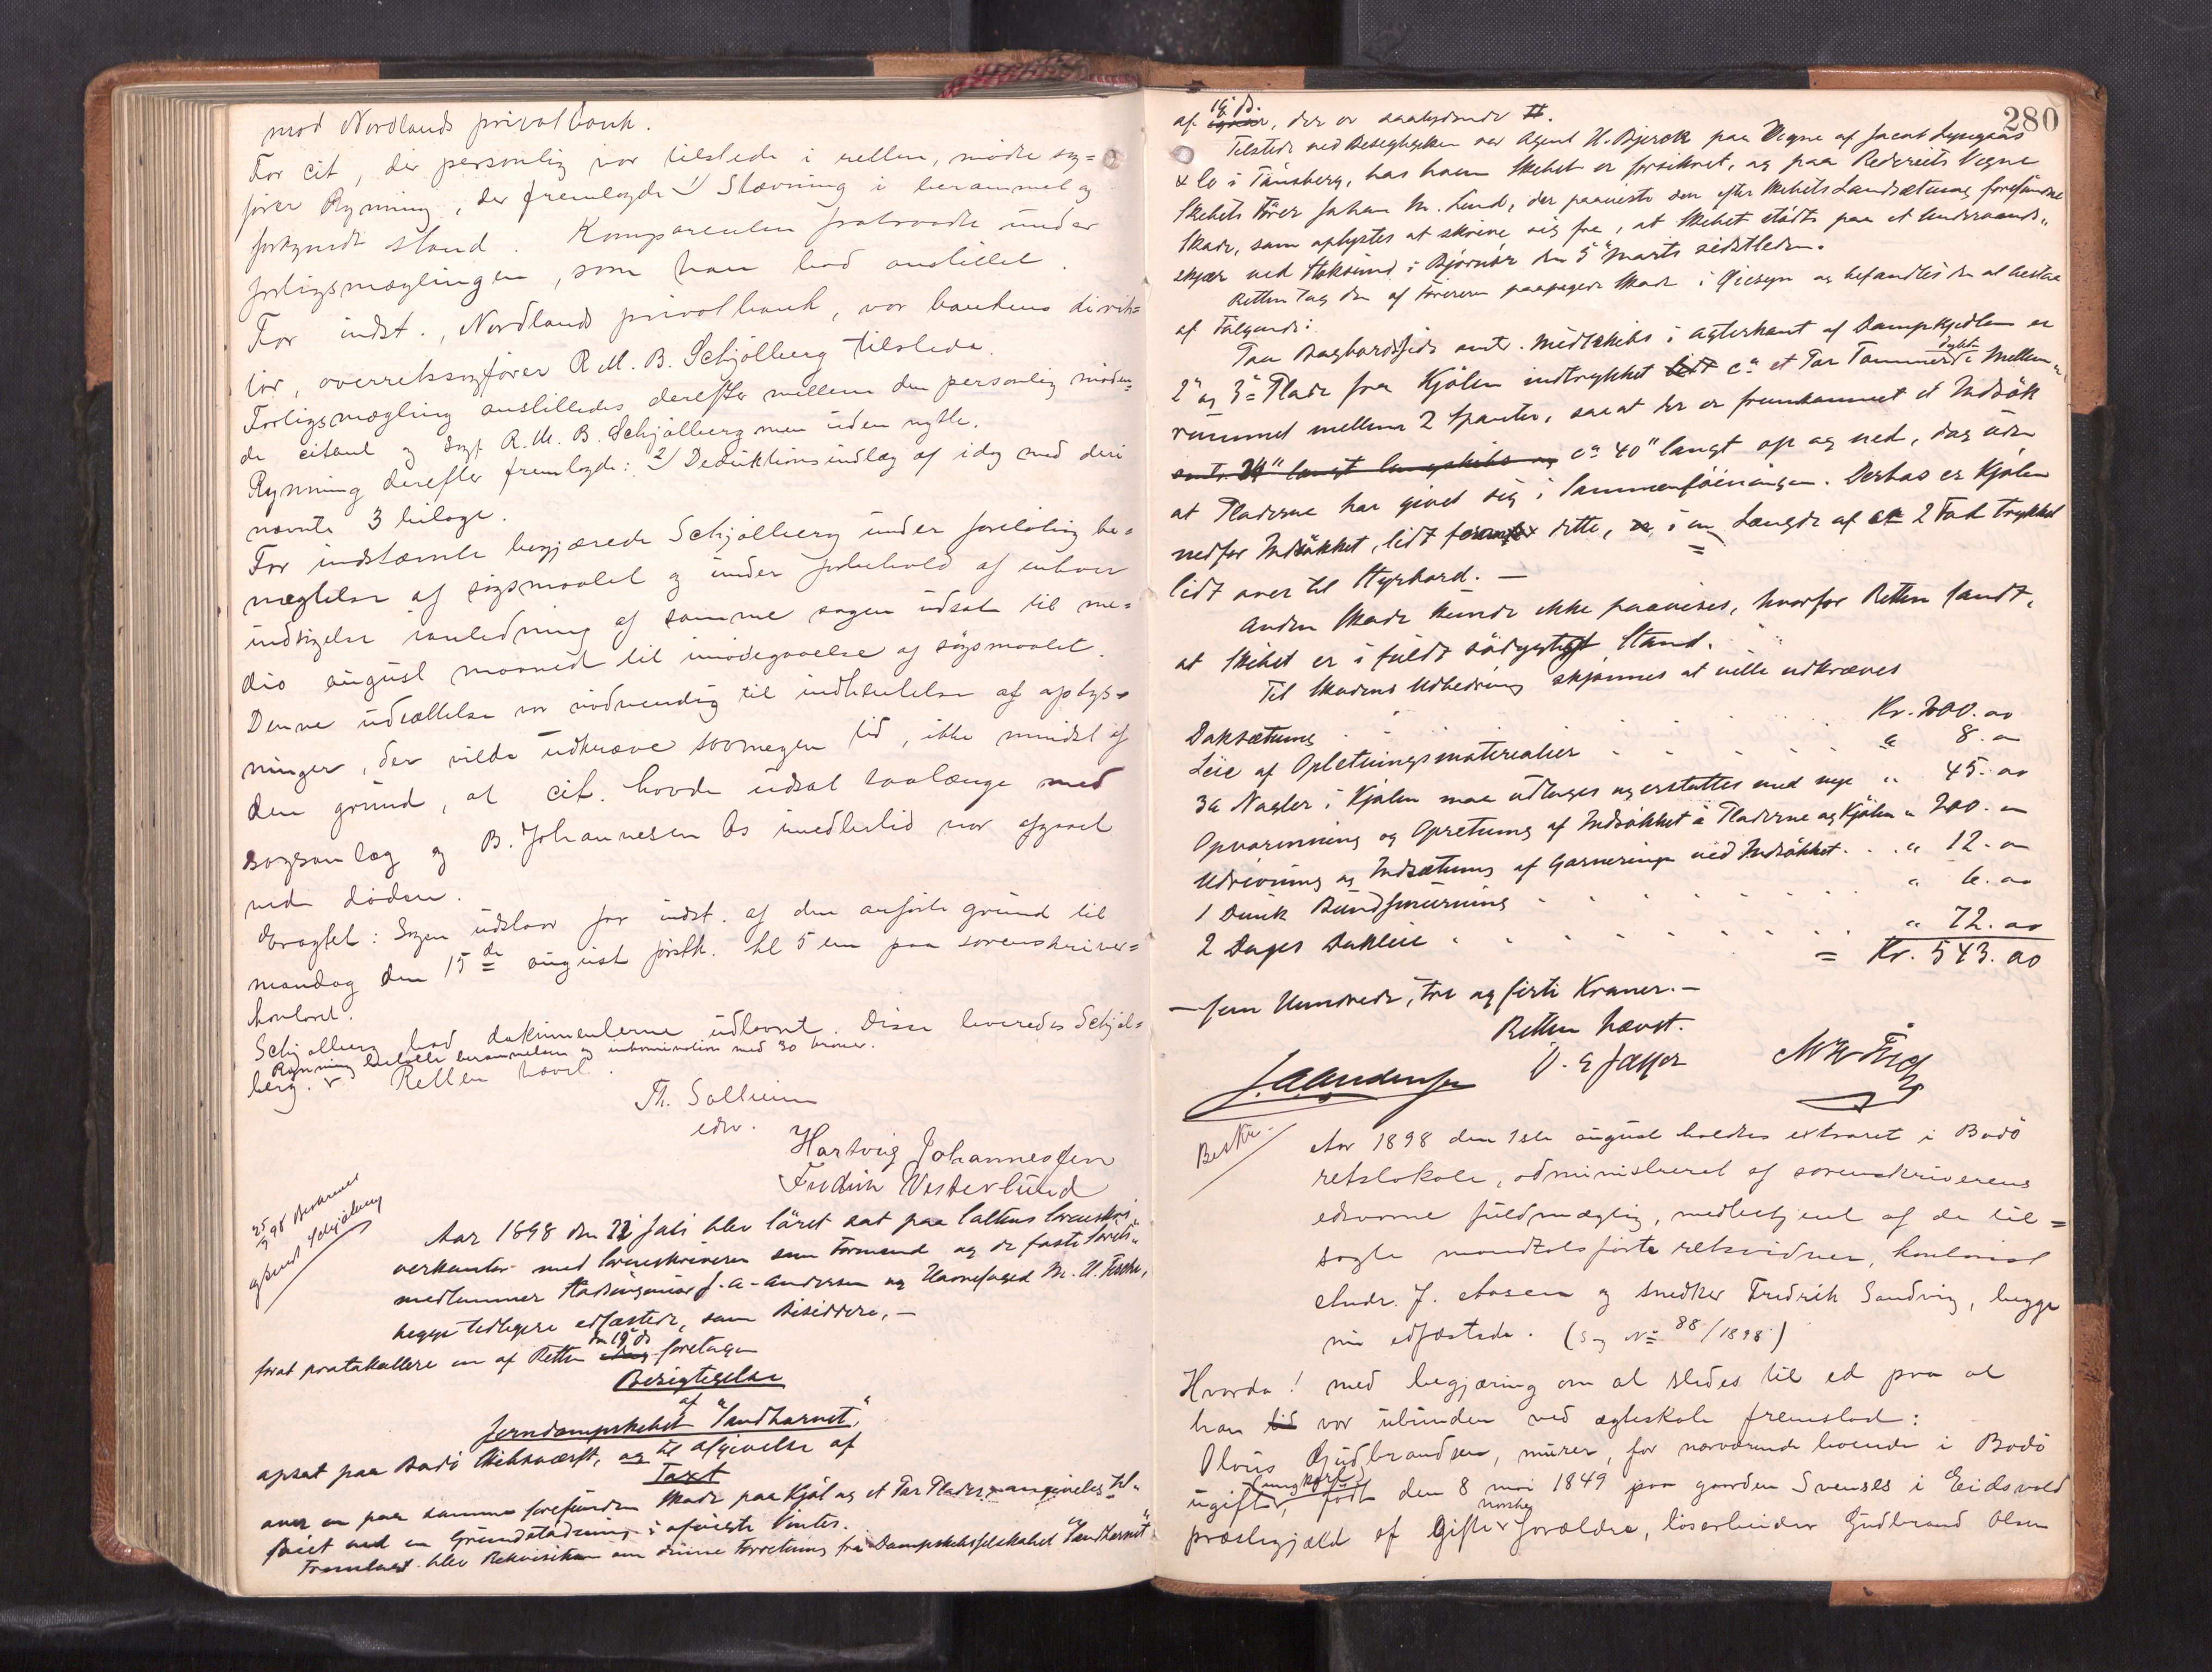 mod Nordlands privatbank.
For cit, der personlig var tilstede i retten, mødte sag=
fører Rynning, der fremlagde 1) Stævning i berammet og
forkyndt stand. Komparenten frafaldt under
forligsmæglingen, som han bad anstillet.
For indst., Nordlands privatbank, var bankens direk=
tør, overretssagfører R. M. B. Schjølberg tilstede.
Forligsmægling anstilledes derefter mellem den personlig møden=
de citant og sagf. R. M. B. Schjølberg men uden nytte.
Rynning derefter fremlagde: 2) Deduktionsindlæg af idag med deri
nævnte 3 bilage.
For indstævnte begjærede Schjølberg under foreløbig be=
nægtelse af søgsmaalet og under forbehold af enhver
indsigelse i anledning af samme sagen udsat til me=
dio august maaned til imødegaaelse af søgsmaalet.
Denne udsættelse var nødvendig til indhentelse af oplys=
ninger, der vilde udkræve saamegen tid, ikke mindst af
den grund, at cit. havde udsat saalænge med
sagsanlæg og B. Johannesen Os imedlertid var afgaaet
ved døden.
Eragtet: Sagen udstaar for indst. af den anførte grund til
mandag den 15de august førstk. kl 5 em paa sorenskriver=
kontoret.
Schjølberg bad dokumenterne udlaant. Disse leveredes Schjøl=
Rynning betalte berammelse og inkamination med 30 kroner.
berg. Retten hævet.
Th. Solheim
edsv.
Hartvig Johannessen
Fredrik Vesterlund
25/7 98
Schjølberg
Aar 1898 den 22 Juli blev søret sat paa Saltens Sorenskri=
verkontor med Sorenskriveren som Formand og de faste Sørets=
medlemmer Stadsingeniør J. A. Andersen og Havnefoged M. U.
begge tidligere edfæstede, som Bisiddere, —
forat protokollere en af Retten den 19de ds foretagen
Besigtigelse
af
Jerndampskibet "Sandhornet",
opsat paa Bodø Skibsværft, og til Afgivelse af
Taxt
over en paa samme forefunden Skade paa Kjøl og et Par Plader, angivelig til=
føiet ved en Grundstødning i afvigte Vinter.
Fremlagt blev Rekvisition om denne Forretning fra Dampskibsselskabet "Sandhornet"
280
af 19de ds., der er saalydende #.
Tilstede ved Besigtigelsen var Agent H. Bjerck paa Vegne af Jacob
& Co i Tønsberg, hos hvem Skibet er forsikret, og paa Rederiets Vegne
Skibets Fører Johan M. Lund, der paaviste den efter Skibets Landsætning forefundne
Skade, som oplystes at skrive sig fra, at Skibet stødte paa et Undervands=
skjær ved Stoksund i Bjørnør den 5te Marts sidstleden.
Retten tog den af Føreren paapegede Skade i Øiesyn og befandtes den at bestaa
af Følgende:
Paa Bagbordsside omtr. midtskibs i agterkant af Dampkjedlen er
2den og 3die Plade fra Kjølen indtrykket lidt ca et Par Tommer dybt i Mellem=
rummet mellem 2 Spanter, saa at der er fremkommet et Indsøk
omtr. 24" langt langskibs og ca 40" langt op og ned, dog uden
at Pladerne har givet sig i Sammenføiningen. Derhos er Kjølen
nedfor Indsøkket, lidt foranfor dette, i en Længde af ca 2 Fod trykket
lidt over til Styrbord. —
Anden Skade kunde ikke paavises, hvorfor Retten fandt,
at Skibet er i fuldt sødygtigt Stand.
Til Skadens Udbedring skjønnes at ville udkræves
Doksætning . . . . . . Kr. 200. 00
Leie af Opletningsmaterialier . . . . . " 8. 00
30 Nagler i Kjølen maa udtages og erstattes med nye " 45. 00
Opvarmning og Opretning af Indsøkket i Pladerne og Kjølen " 200. 00
Udrivning og Indsætning af Garneringen ved Indsøkket . . " 12. 00
1 Dunk Bundsmurning . . . . . . . " 6. 00
2 Dages Dokleie . . . . . . . . " 72. 00
= Kr. 543. 00
— fem Hundrede, tre og firti Kroner. —
Retten hævet.
J. A. Andersen
Beskr.
Aar 1898 den 1ste august holdtes extraret i Bodø
retslokale, administreret af sorenskriverens
edsvorne fuldmægtig, medbetjent af de til=
sagte mandtalsførte retsvidner,
Andr. J. Aasen og snedker Fredrik Sandvig, begge
nu edfæstede. (Sag No 88/1898)
Hvorda! med begjæring om at stedes til ed paa at
han tid var ubunden ved ægteskab fremstod:
Olous Gudbrandsen, murer, for nærværende boende i Bodø
ungkarl,
ugift, født den 8 mai 1849 paa gaarden Svenses i Eidsvold
norske
præstegjæld af gifte forældre, løsarbeider Gudbrand Olsen